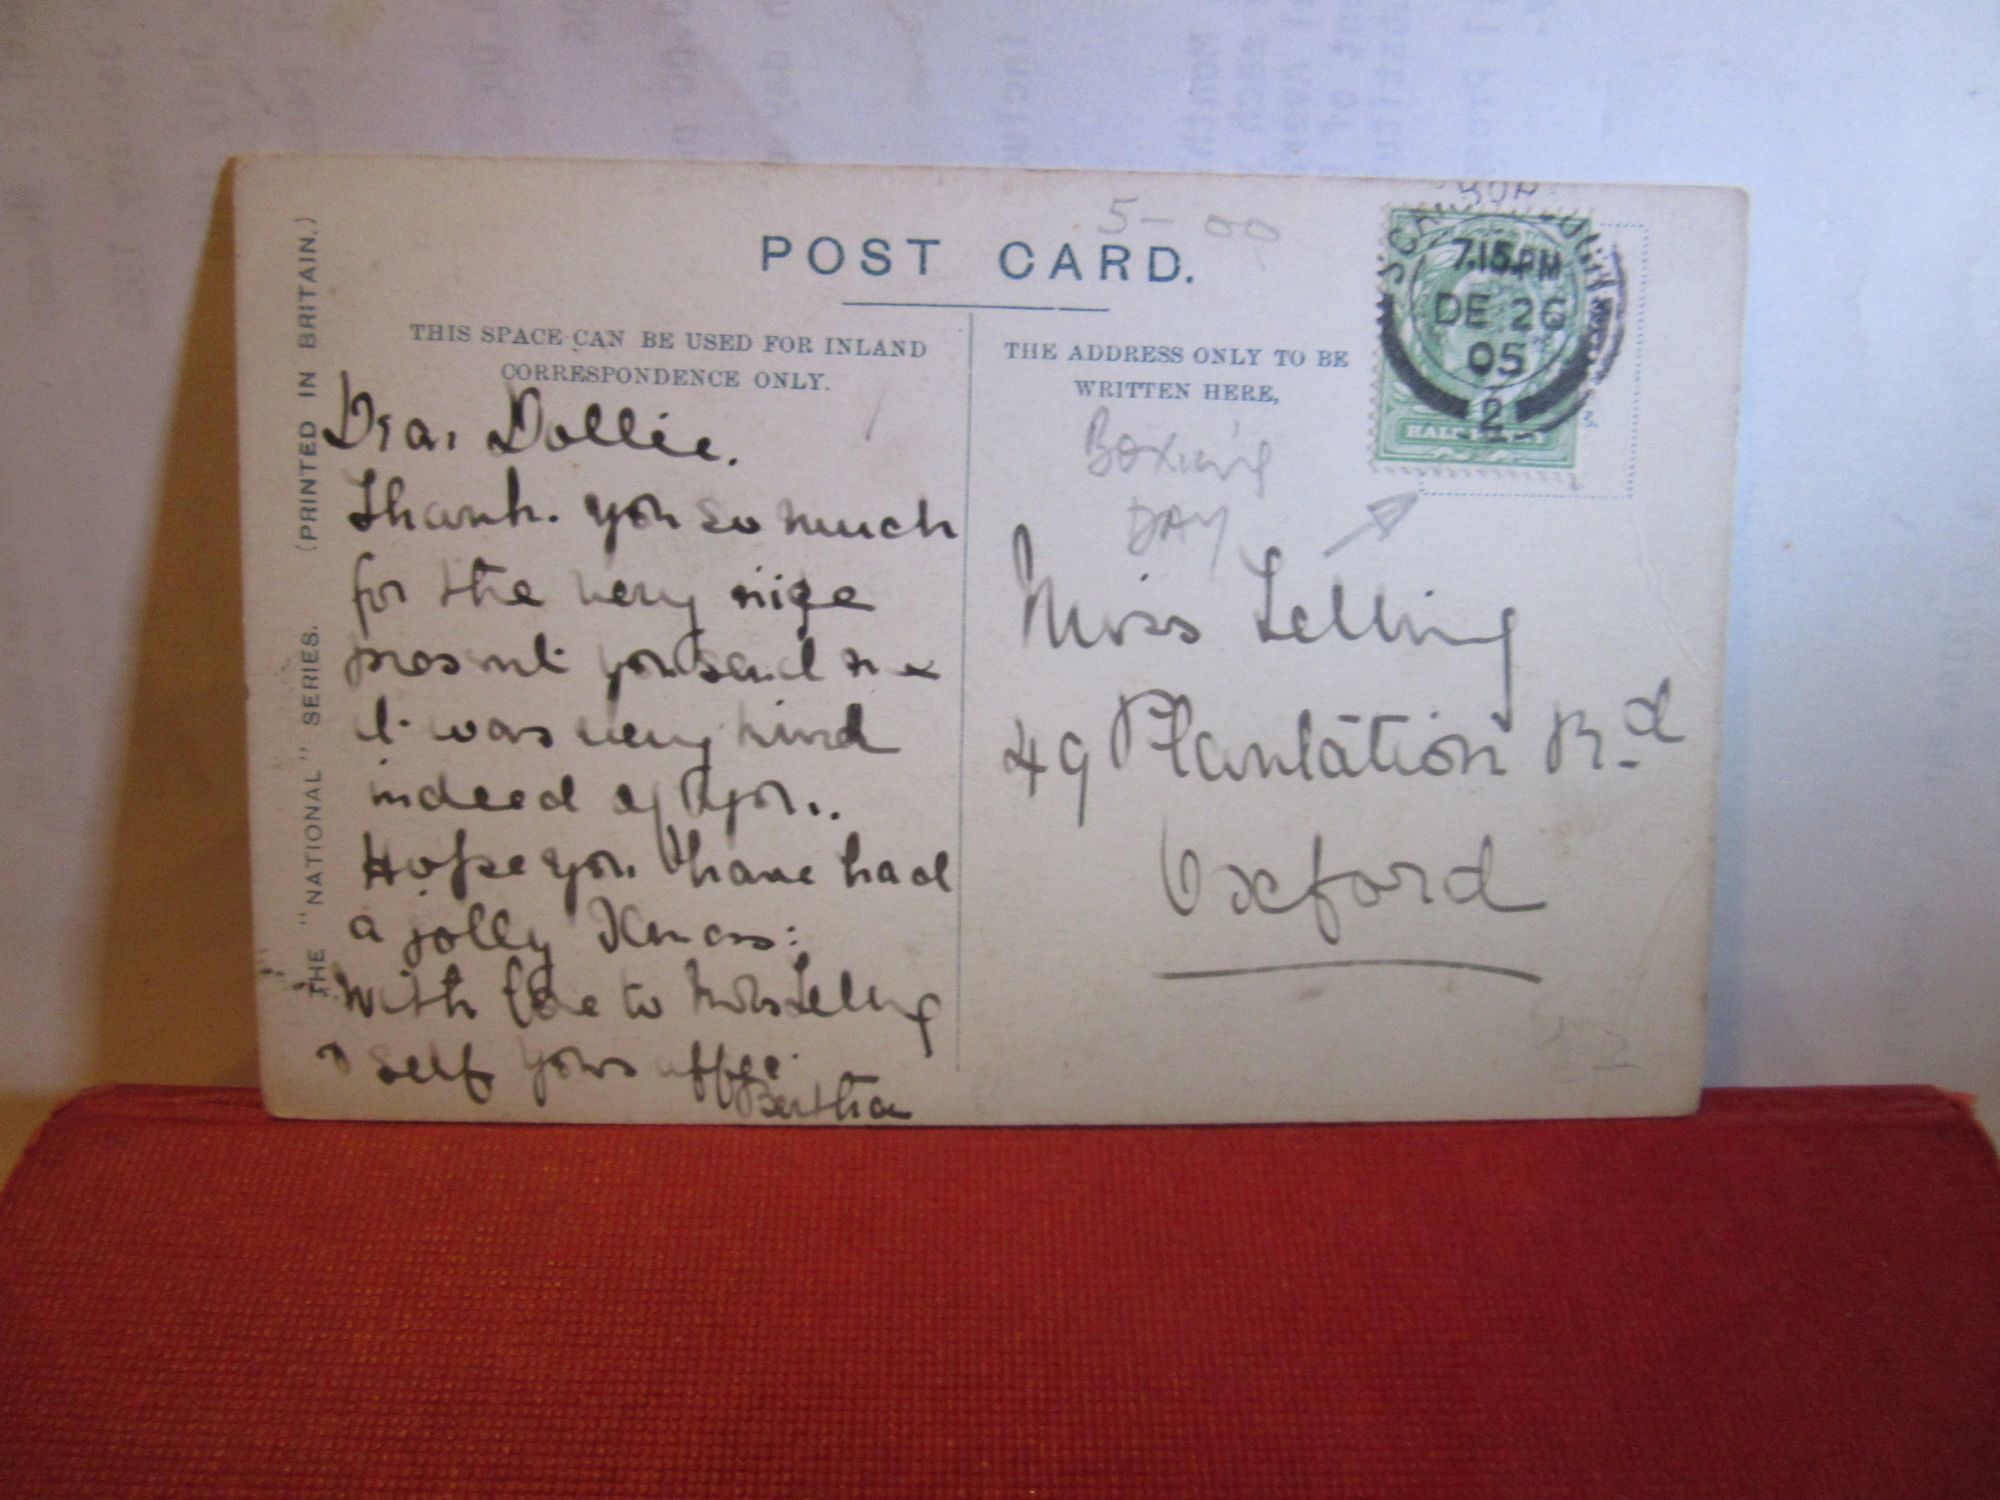 POST CARD.
5-00
THIS SPACE CAN BE USED FOR INLAND
CORRESPONDENCE ONLY.
THE ADDRESS ONLY TO BE
WRITTEN HERE,
THE "NATIONAL" SERIES. (PRINTED IN BRITAIN.)
Dear Dollie.
Thank you so much
for the very nice
present you send me
it was very kind
indeed of you.
Hope you have had
a jolly Xmas:
with love to Mrs Lelling
& self yours affec
Bertha
7.15 PM
DE 26
05
2
HALFPENNY
BOXING
DAY
Miss Lelling
49 Plantation Rd
Oxford